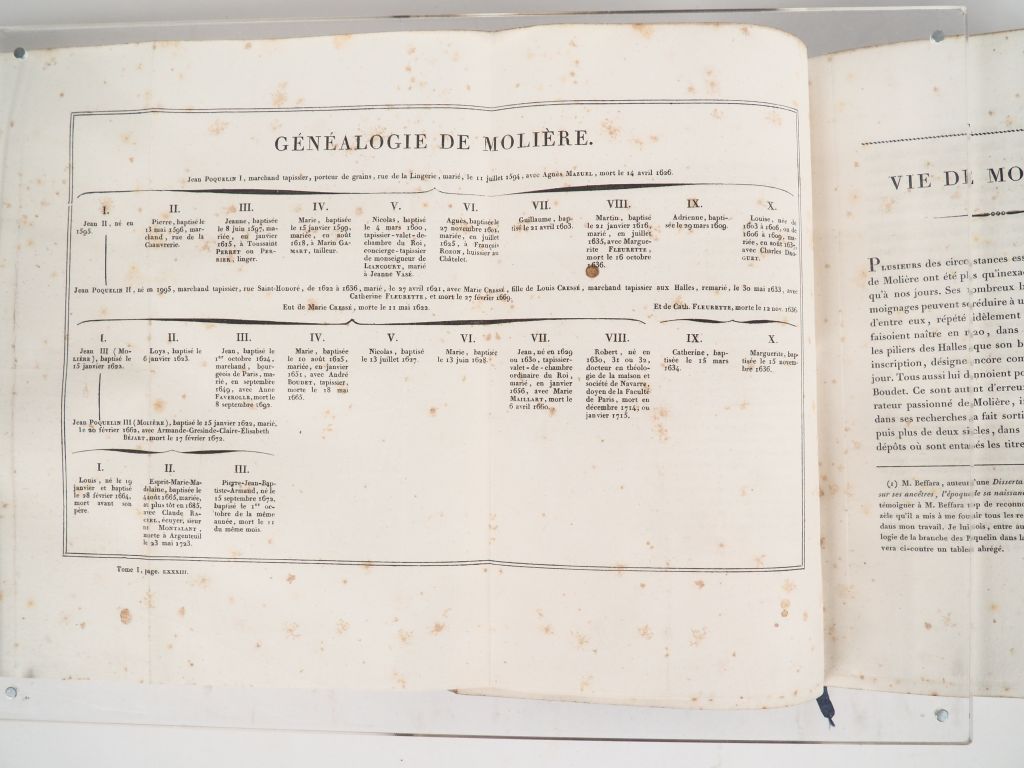 GÉNÉALOGIE DE MOLIÈRE.
Jean POQUELIN I, marchand tapissier, porteur de grains, rue de la Lingerie, marié, le 11 juillet 1594, avec Agnès MAZUEL, mort le 14 avril 1626.
I.
Jean II, né en
1595.
II.
Pierre, baptisé le
13 mai 1596, mar-
chand, rue de la
Chanverrie.
III.
Jeanne, baptisée
le 8 juin 1597, ma-
riée, en janvier
1615, à Toussaint
PERRET ou PER-
RIER, linger.
IV.
Marie, baptisée
le 15 janvier 1599,
mariée, en août
1618, à Marin GA-
MART, tailleur.
V.
Nicolas, baptisé
le 4 mars 1600,
tapissier-valet-de-
chambre du Roi,
concierge-tapissier
de monseigneur de
LIANCOURT, marié
à Jeanne VASE.
VI.
Agnès, baptisée le
27 novembre 1601,
mariée, en juillet
1625, à François
ROZON, huissier au
Châtelet.
VII.
Guillaume, bap-
tisé le 21 avril 1603.
VIII.
Martin, baptisé
le 21 janvier 1616,
marié, en juillet
1635, avec Margue-
rite FLEURETTE,
mort le 16 octobre
1636.
IX.
Adrienne, bapti-
sée le 29 mars 1609.
X.
Louise, née de
1603 à 1606, ou de
1606 à 1609, ma-
riée, en août 1637,
avec Charles
GUET.
Jean POQUELIN II, né en 1595, marchand tapissier, rue Saint-Honoré, de 1622 à 1636, marié, le 27 avril 1621, avec Marie CRESSÉ, fille de Louis CRESSÉ, marchand tapissier aux Halles, remarié, le 30 mai 1633, avec
Catherine FLEURETTE, et mort le 27 février 1669.
Eut de Marie CRESSÉ, morte le 11 mai 1632.
Et de Cath. FLEURETTE, morte le 12 nov. 1636
I.
Jean III (MO-
LIÈRE), baptisé le
15 janvier 1622.
II.
Loys, baptisé le
6 janvier 1623.
III.
Jean, baptisé le
1er octobre 1624,
marchand, bour-
geois de Paris, ma-
rié, en septembre
1649, avec Anne
FAVEROLLE, mort le
8 septembre 1692.
IV.
Marie, baptisée
le 10 août 1625,
mariée, en janvier
1651, avec André
BOUDET, tapissier,
morte le 18 mai
1665.
V.
Nicolas, baptisé
le 13 juillet 1627.
VI.
Marie, baptisée
le 13 juin 1628.
VII.
Jean, né en 1629
ou 1630, tapissier-
valet-de-chambre
ordinaire du Roi,
marié, en janvier
1656, avec Marie
MAILLART, mort le
6 avril 1660.
VIII.
Robert, né en
1630, 31 ou 32,
docteur en théolo-
gie de la maison et
société de Navarre,
doyen de la Faculté
de Paris, mort en
décembre 1714, ou
janvier 1715.
IX.
Catherine, bap-
tisée le 15 mars
1634.
X.
Marguerite, bap-
tisée le 15 novem-
bre 1636.
Jean POQUELIN III (MOLIÈRE), baptisé le 15 janvier 1622, marié,
le 20 février 1662, avec Armande-Gresinde-Claire-Élisabeth
BÉJART, mort le 17 février 1672.
I.
Louis, né le 19
janvier et baptisé
le 28 février 1664,
mort avant son
père.
II.
Esprit-Marie-Ma-
delaine, baptisée le
4 août 1665, mariée,
au plus tôt en 1685,
avec Claude RA-
CHEL, écuyer, sieur
DE MONTALANT,
morte à Argenteuil
le 23 mai 1723.
III.
Pierre-Jean-Bap-
tiste-Armand, né le
15 septembre 1672,
baptisé le 1er oc-
tobre de la même
année, mort le 11
du même mois.
Tome I, page. LXXXIII.
VIE DE MO
PLUSIEURS des circonstances ess
de Molière ont été plus qu'inexac
qu'à nos jours. Ses nombreux b
moignages peuvent se réduire à u
d'entre eux, répété fidèlement
faisoient naître en 1620, dans
les piliers des Halles que son b
inscription, désigne encore com
jour. Tous aussi lui donnoient po
Boudet. Ce sont autant d'erreur
rateur passionné de Molière, i
dans ses recherches, a fait sorti
puis plus de deux siècles, dans
dépôts où sont entassés les titre
(1) M. Beffara, auteur d'une Disserta
sur ses ancêtres, l'époque de sa naissanc
témoigner à M. Beffara trop de reconno
zèle qu'il a mis à me fournir tous les re
dans mon travail. Je lui dois, entre au
logie de la branche des Poquelin dans la
vera ci-contre un tableau abrégé.